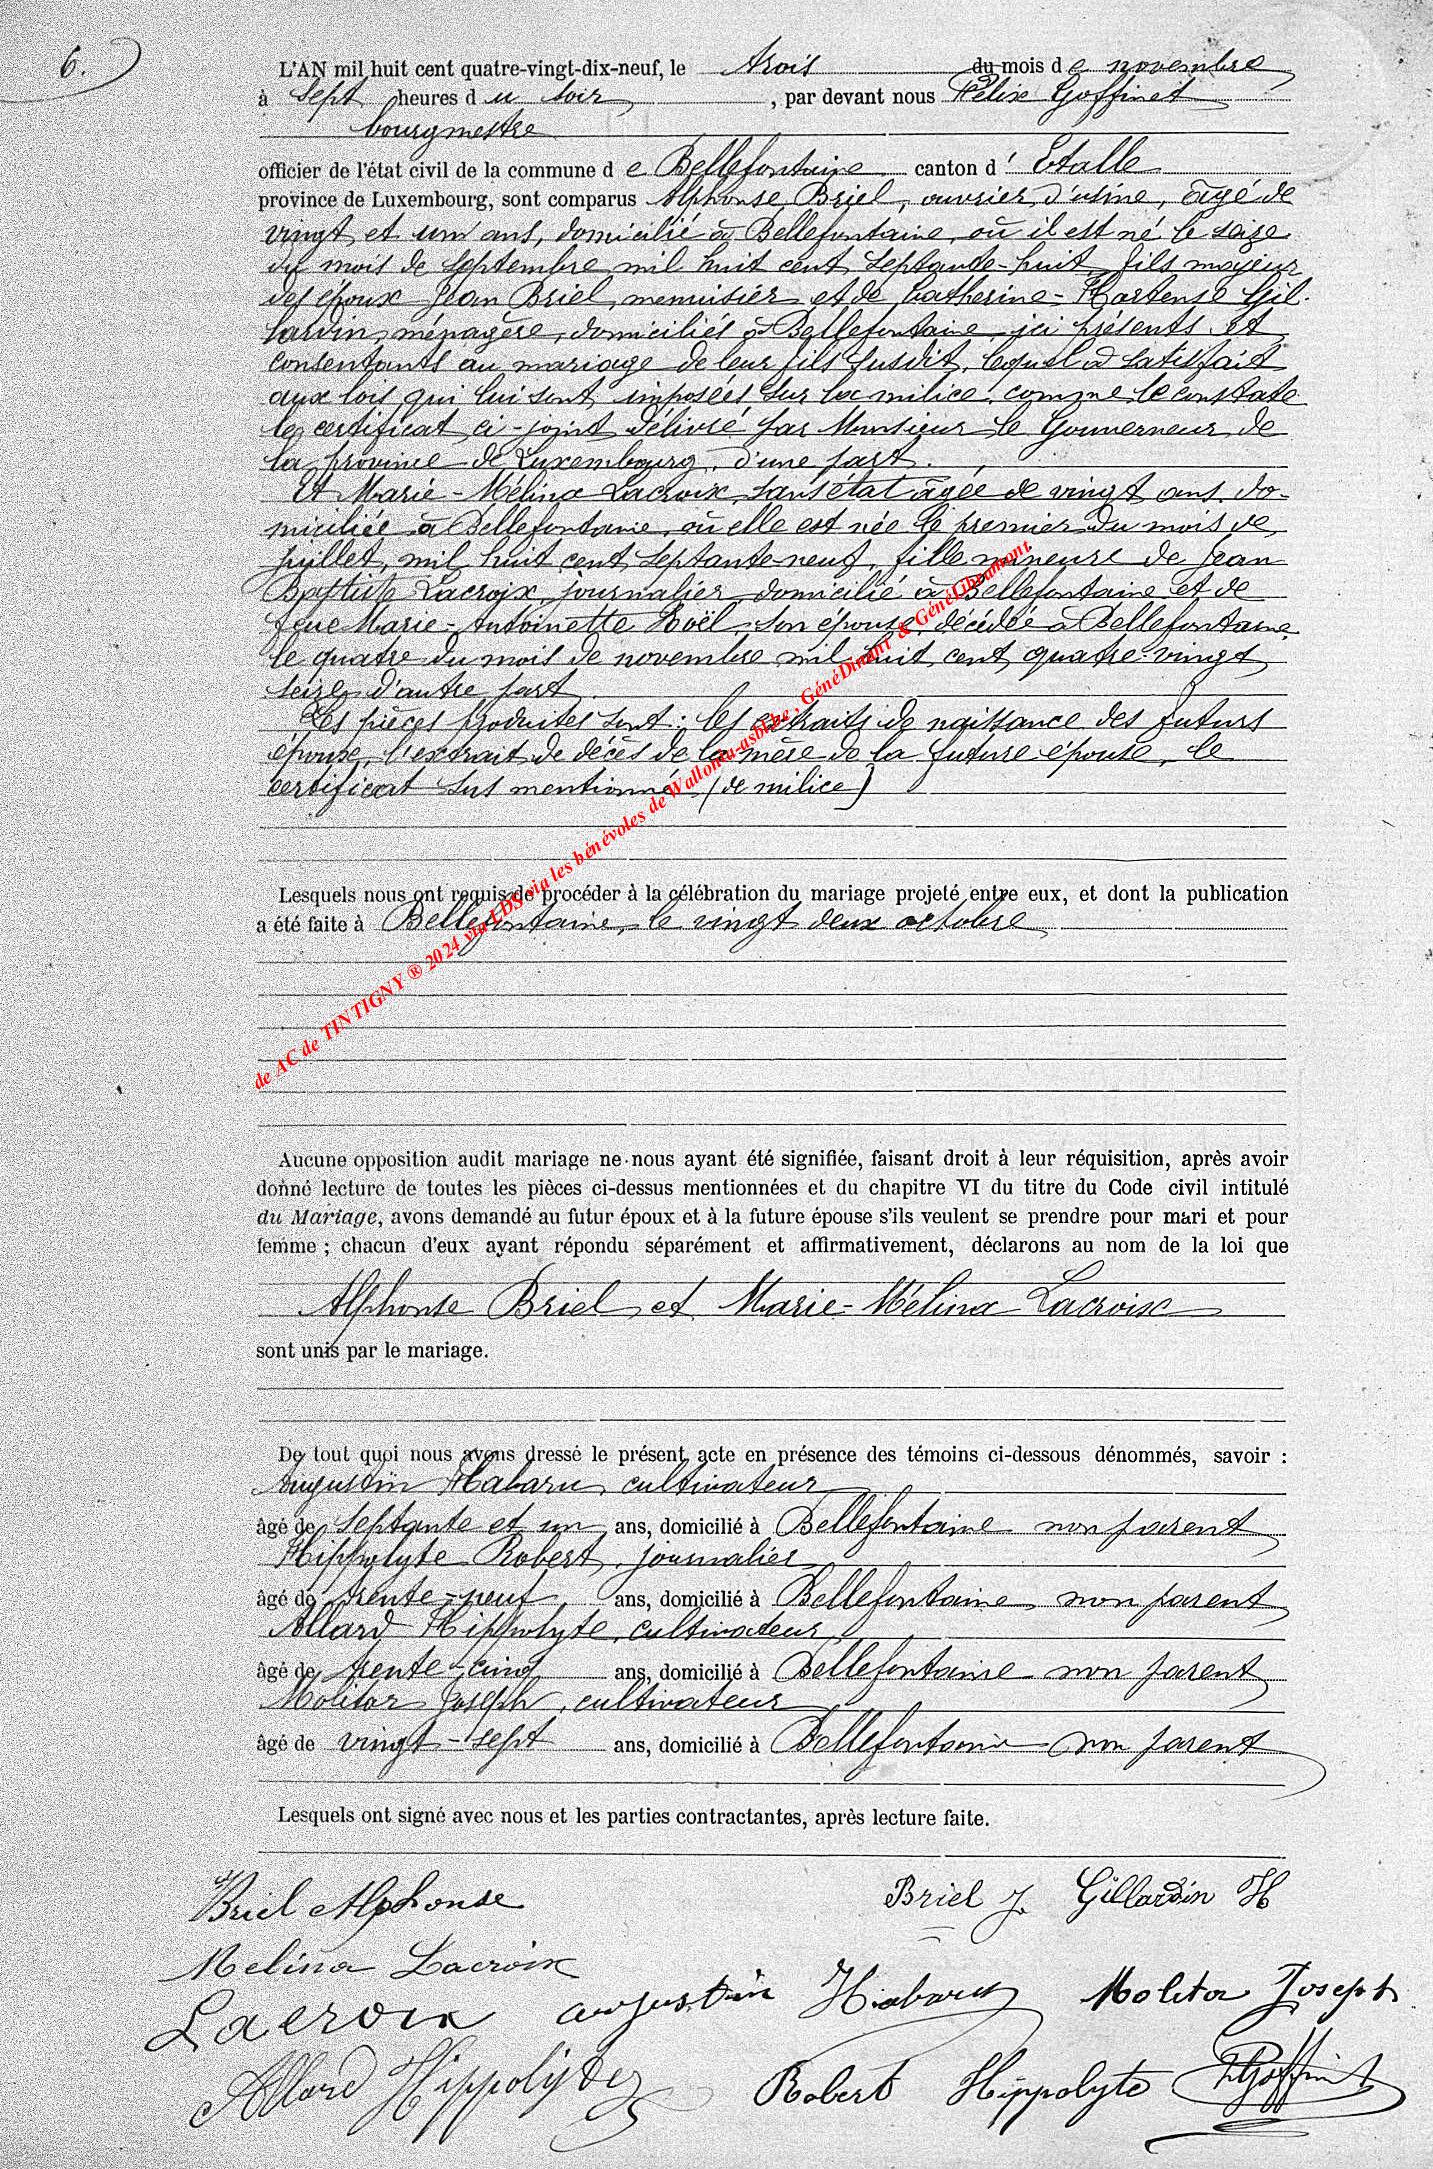 6.
L'AN mil huit cent quatre-vingt-dix-neuf, le trois du mois de novembre
à sept heures du soir, par devant nous Félix Goffinet
bourgmestre
officier de l'état civil de la commune de Bellefontaine canton d' Etalle
province de Luxembourg, sont comparus Alphonse Briel, ouvrier d'usine, âgé de
vingt et un ans, domicilié à Bellefontaine, où il est né le seize
du mois de septembre mil huit cent septante-huit, fils majeur
des époux Jean Briel, menuisier et de Catherine-Hortense Gil-
lardin, ménagère, domiciliés à Bellefontaine, ici présents et
consentants au mariage de leur fils susdit, lequel a satisfait
aux lois qui lui sont imposées sur la milice, comme le constate
le certificat ci-joint délivré par Monsieur le Gouverneur de
la province de Luxembourg, d'une part.
Et Marie-Mélina Lacroix, sans état âgée de vingt ans, do-
miciliée à Bellefontaine, où elle est née le premier du mois de
juillet, mil huit cent septante-neuf, fille mineure de Jean
Baptiste Lacroix journalier domicilié à Bellefontaine et de
feue Marie-Antoinette Noël, son épouse, décédée à Bellefontaine
le quatre du mois de novembre mil huit cent quatre-vingt
seize, d'autre part.
Les pièces produites sont : les extraits de naissance des futurs
époux, l'extrait de décès de la mère de la future épouse, le
certificat sus mentionné (de milice)
Lesquels nous ont requis de procéder à la célébration du mariage projeté entre eux, et dont la publication
a été faite à Bellefontaine, le vingt deux octobre
de AC de TINTIGNY ® 2024 via LDS via les bénévoles de Wallonia-asbl.be, GénéDinant & GénéLibramont
Aucune opposition audit mariage ne nous ayant été signifiée, faisant droit à leur réquisition, après avoir
donné lecture de toutes les pièces ci-dessus mentionnées et du chapitre VI du titre du Code civil intitulé
du Mariage, avons demandé au futur époux et à la future épouse s'ils veulent se prendre pour mari et pour
femme ; chacun d'eux ayant répondu séparément et affirmativement, déclarons au nom de la loi que
Alphonse Briel et Marie-Mélina Lacroix
sont unis par le mariage.
De tout quoi nous avons dressé le présent acte en présence des témoins ci-dessous dénommés, savoir :
Augustin Habaru, cultivateur
âgé de septante et un ans, domicilié à Bellefontaine non parent
Hippolyte Robert, journalier
âgé de trente-neuf ans, domicilié à Bellefontaine non parent
Allard Hippolyte, cultivateur
âgé de trente-cinq ans, domicilié à Bellefontaine non parent
Molitor Joseph, cultivateur
âgé de vingt-sept ans, domicilié à Bellefontaine non parent
Lesquels ont signé avec nous et les parties contractantes, après lecture faite.
Briel Alphonse Briel J. Gillardin H
Melina Lacroix
Lacroix augustin Habaru Molitor Joseph
Allard Hippolyte Robert Hippolyte F Goffinet